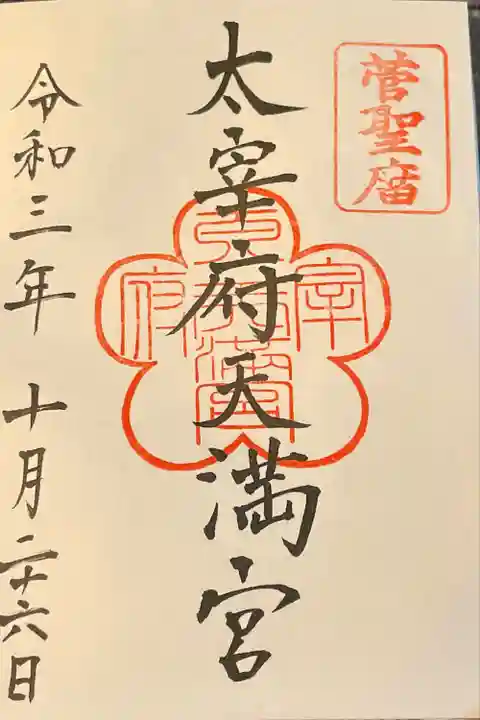 菅聖庿
太宰府天満宮
令和三年 十月二十六日